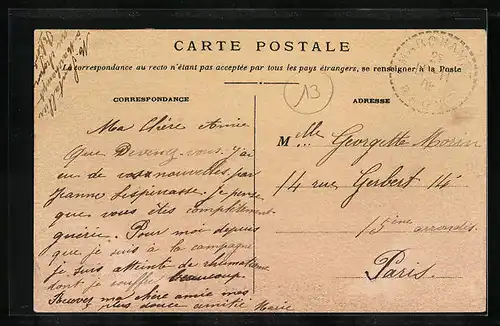 CARTE POSTALE
La correspondance au recto n'étant pas acceptée par tous les pays étrangers, se renseigner à la Poste
13
CORRESPONDANCE
Ma Chère Amie
Que Devenez-vous. J'ai
eu de vos nouvelles par
Jeanne je pense
que vous êtes complètement
guérie. Pour moi depuis
que je suis à la campagne
je suis atteinte de rhumatisme
dont je souffre beaucoup
Recevez ma chère amie mes
plus douce amitié Marie
ADRESSE
Mlle Georgette Morin
14 rue Gerbert 14
15ème arrondis.
Paris.